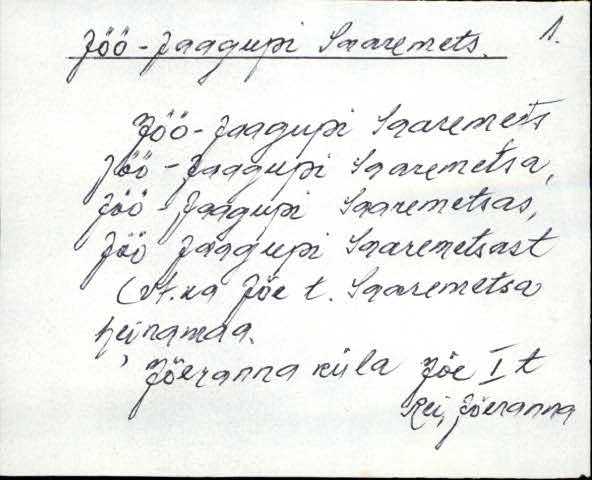 Jöö-Jaagupi Saaremets. 1.
Jöö-Jaagupi Saaremets
Jöö-Jaagupi Saaremetsa,
Jöö-Jaagupi Saaremetsas,
Jöö Jaagupi Saaremetsast
(vt. ka Jõe t. Saaremetsa
heinamaa.
Jõeranna küla Jõe I t
Rei, Jõeranna